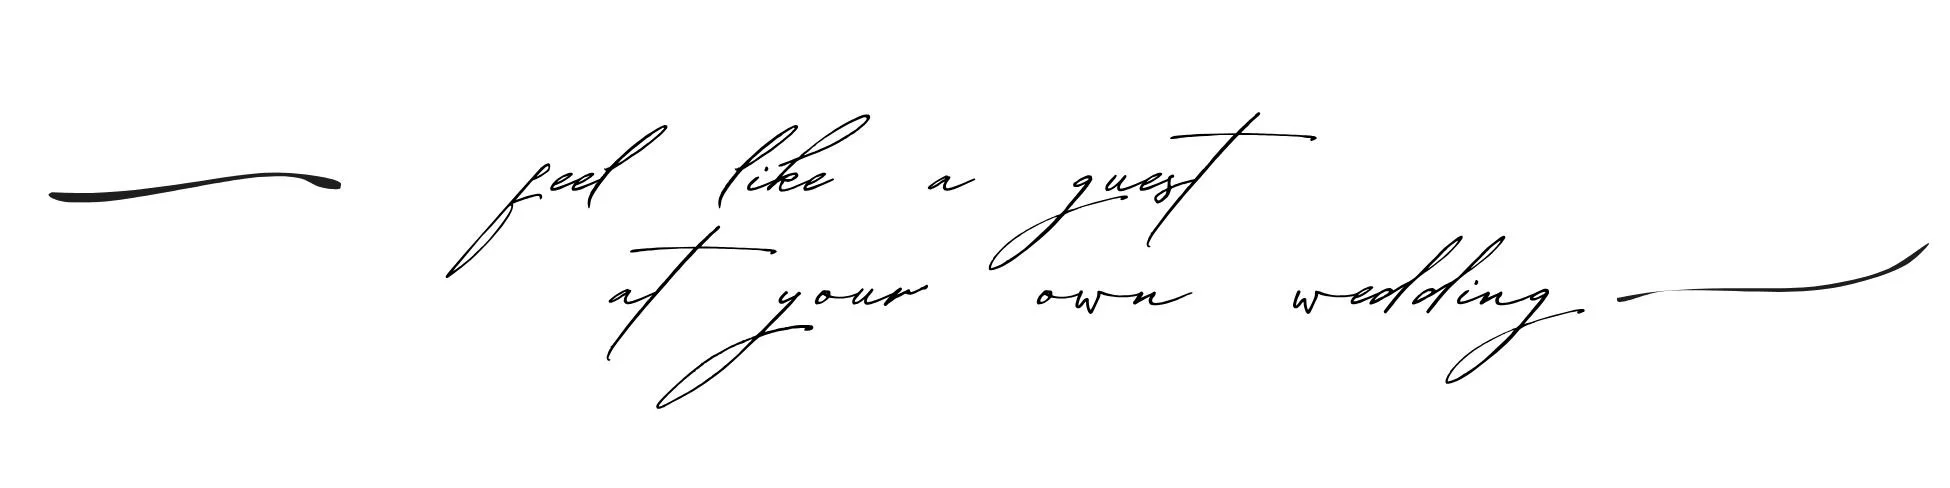 feel like a guest
at your own wedding